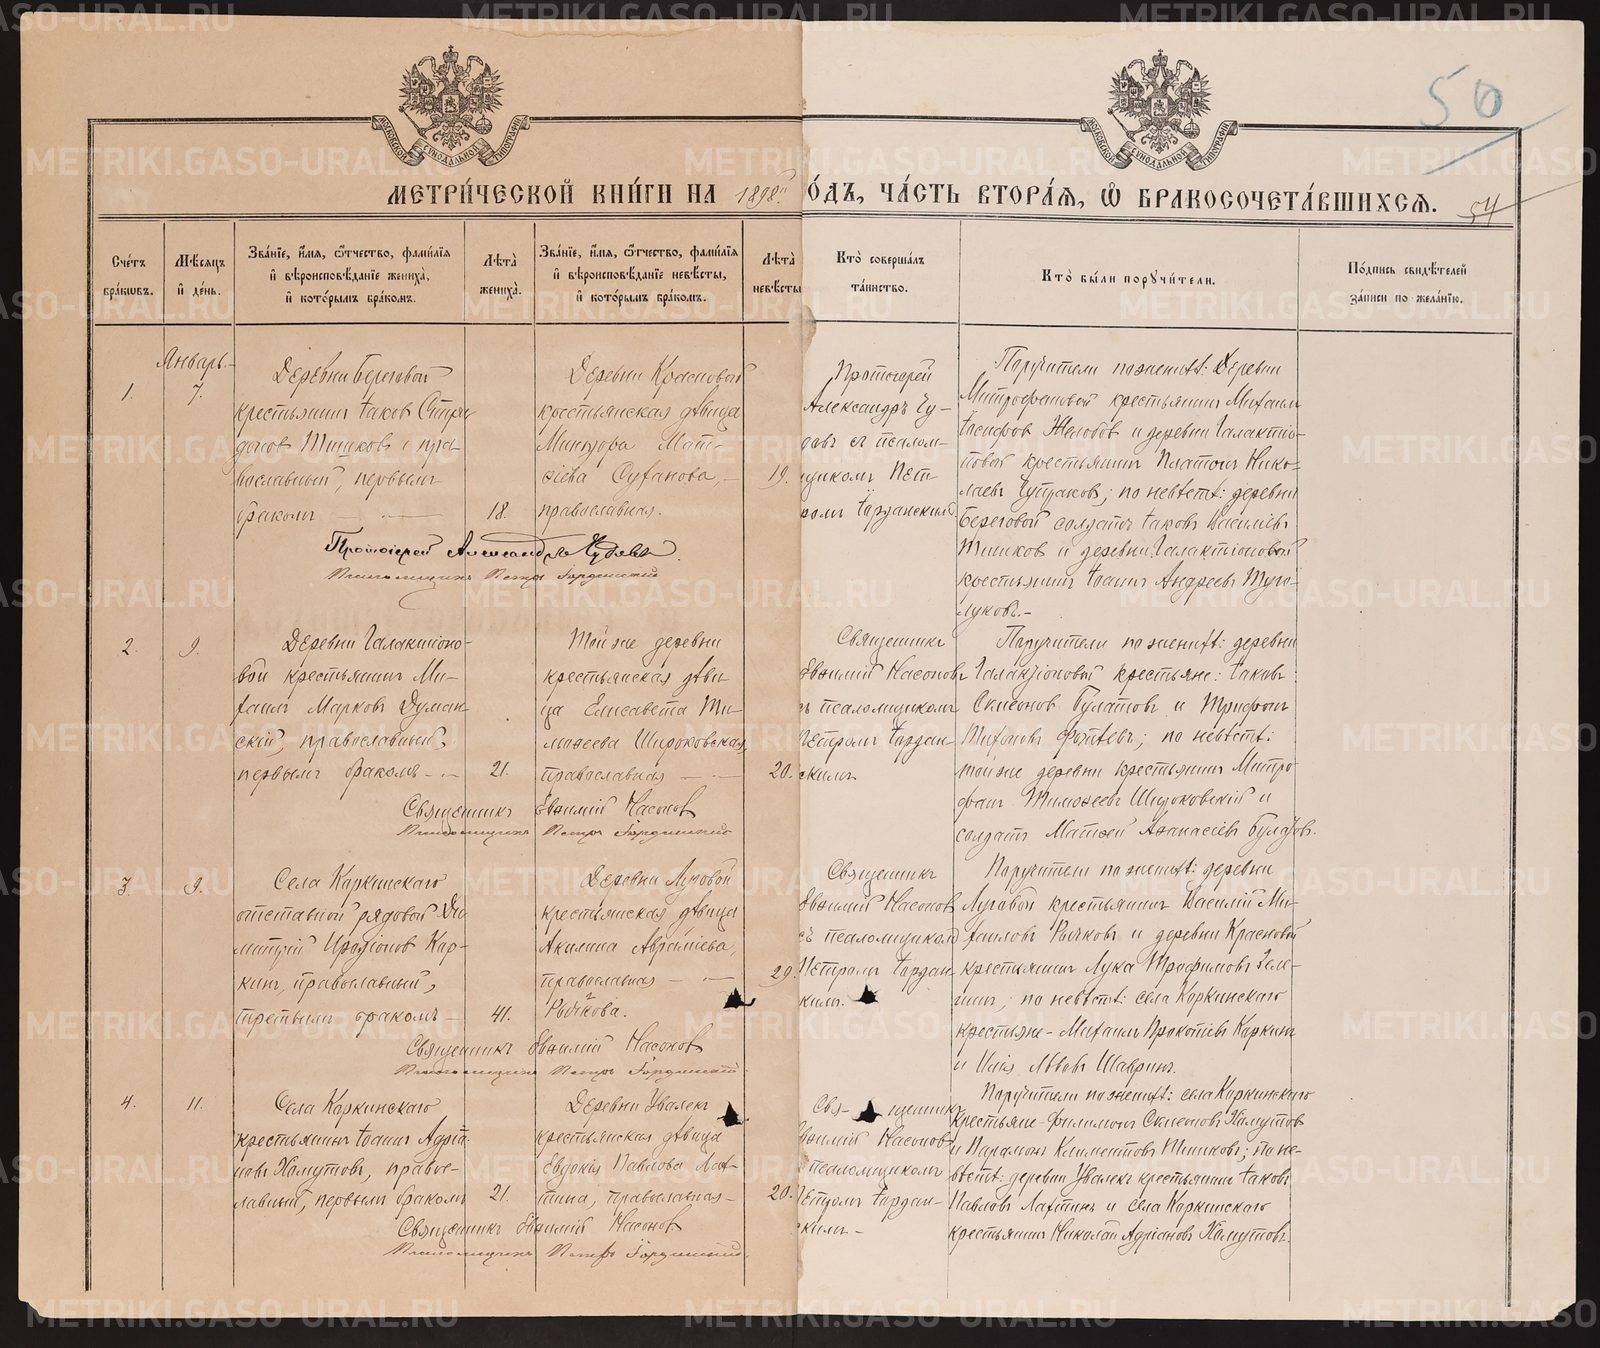 50
МЕТРИЧЕСКОЙ КНИГИ НА 1898й ГОДЪ, ЧАСТЬ ВТОРАЯ, Ѡ БРАКОСОЧЕТАВШИХСЯ.
54
Счетъ браковъ.
Мѣсяцъ и день.
Званіе, имя, отчество, фамилія и вѣроисповѣданіе жениха, и которымъ бракомъ.
Лѣта жениха.
Званіе, имя, отчество, фамилія и вѣроисповѣданіе невѣсты, и которымъ бракомъ.
Лѣта невѣсты
Кто совершалъ таинство.
Кто были поручители.
Подпись свидѣтелей записи по желанію.
Январь
1.
7.
Деревни Береговой
крестьянинъ Іаковъ
Тишковъ, пра-
вославный, первымъ
бракомъ
18.
Деревни Красновой
крестьянская дѣвица
Мат-
ѳіева Суханова,
православная.
19.
Протоіерей
Александръ Чу-
с псалом-
щикомъ Пет-
ромъ Гордянскимъ
Поручители по женихѣ: Деревни
Митрофановой крестьянинъ Михаилъ
Іосифовъ Желобовъ и деревни Галактіо-
новой крестьянинъ Платонъ Нико-
лаевъ Чупраковъ; по невѣстѣ: деревни
Береговой солдатъ Іаковъ Василіевъ
Тишковъ и деревни Галактіоновой
крестьянинъ Іоаннъ Андреевъ
луковъ.
Протоіерей Александръ
Псаломщикъ Петръ Гордянский
2.
9.
Деревни Галактіоно-
вой крестьянинъ Ми-
хаилъ Марковъ Думан-
скій, православный,
первымъ бракомъ
21.
Той же деревни
крестьянская дѣви-
ца Елисавета Ти-
моѳеева Широковская,
православная
20.
Священникъ
Евѳимій Насоновъ
съ псаломщикомъ
Петромъ Гордян-
скимъ.
Поручители по женихѣ: деревни
Галактіоновой крестьяне: Іаковъ
Симеоновъ Булатовъ и Трифонъ
Михаиловъ; по невѣстѣ:
той же деревни крестьянинъ Митро-
фанъ Тимоѳеевъ Широковскій и
солдатъ Матѳей Аѳанасіевъ Булатовъ.
Священникъ Евѳимій Насоновъ
Псаломщикъ Петръ Гордянский
3.
9.
Села Каркинскаго
отставной рядовой Ди-
митрій Иродіоновъ Кар-
кинъ, православный,
третьимъ бракомъ
41.
Деревни Луговой
крестьянская дѣвица
Акилина Авраміева,
православная
Рычкова.
29.
Священникъ
Евѳимій Насоновъ
съ псаломщикомъ
Петромъ Гордян-
скимъ.
Поручители по женихѣ: деревни
Луговой крестьянинъ Василій Ми-
хаиловъ Рычковъ и деревни Красновой
крестьянинъ Лука Трофимовъ Зеле-
нинъ; по невѣстѣ: села Каркинскаго
крестьяне - Михаилъ Прокопіевъ Каркинъ
и Илія Львовъ Шавринъ.
Священникъ Евѳимій Насоновъ
Псаломщикъ Петръ Гордянский
4.
11.
Села Каркинскаго
крестьянинъ Іоаннъ Адріа-
новъ Хомутовъ, право-
славный, первымъ бракомъ
21.
Деревни Увалекъ
крестьянская дѣвица
Евдокія Павлова Лах-
тина, православная
20.
Священникъ
Евѳимій Насоновъ
псаломщикомъ
Петромъ Гордян-
скимъ
Поручители по женихѣ: села Каркинскаго
крестьяне - Филимонъ Симеоновъ Хомутовъ
и Парамонъ Климентовъ Тишковъ; по не-
вѣстѣ: деревни Увалекъ крестьянинъ Іаковъ
Павловъ Лахтинъ и села Каркинскаго
крестьянинъ Николай Адріановъ Хомутовъ.
Священникъ Евѳимій Насоновъ
Псаломщикъ Петръ Гордянский
METRIKI.GASO-URAL.RU